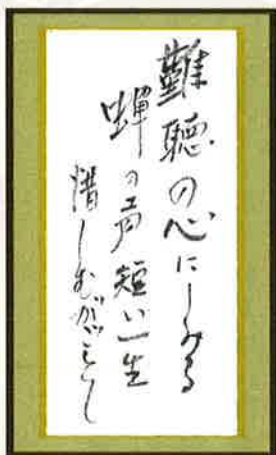 難聴の心にしみる
蝉の声短い一生
惜しむがごとし